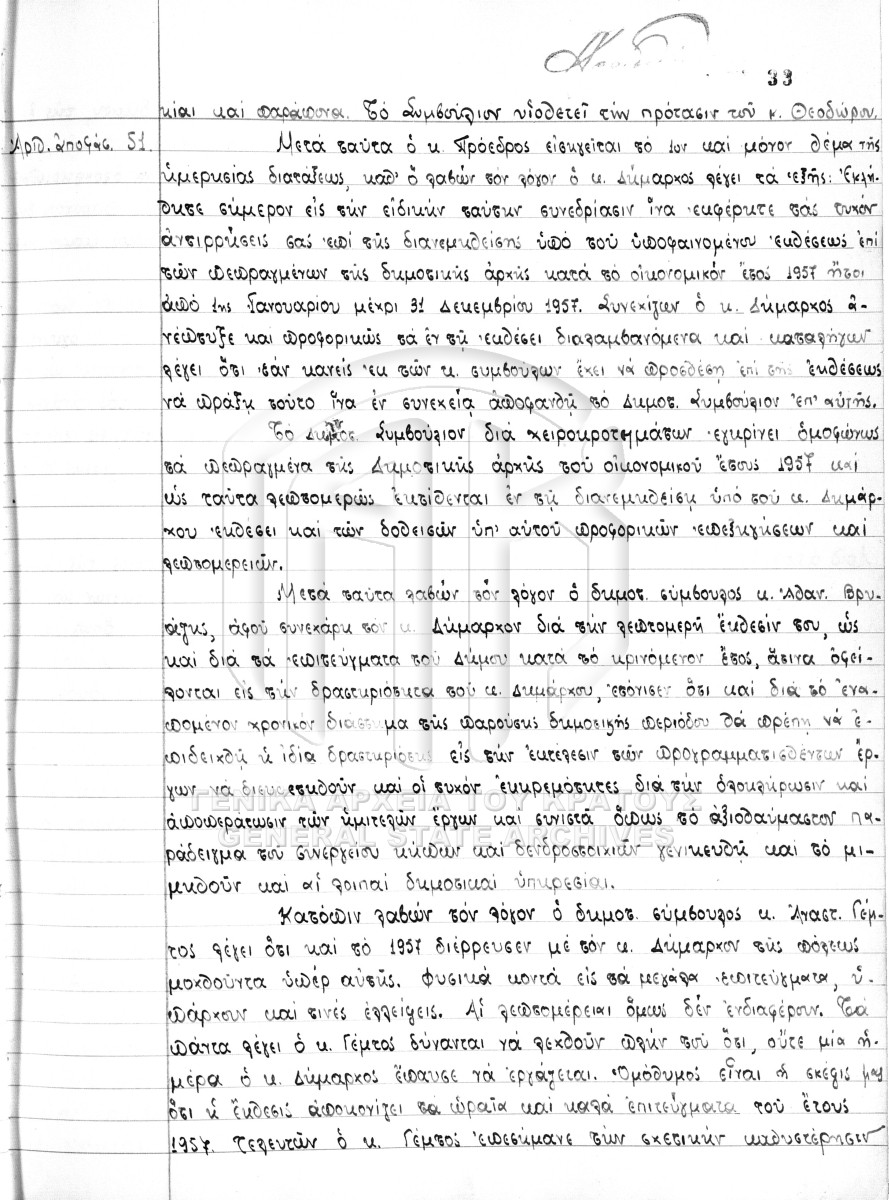 33
κίαι καί παράπονα. Τό Συμβούλιον υἱοθετεῖ τήν πρότασιν τοῦ κ. Θεοδώρου.
Ἀριθ. ἀποφάσ. 51.
Μετά ταῦτα ὁ κ. Πρόεδρος εἰσηγεῖται τό 1ον καί μόνον θέμα τῆς
ἡμερησίας διατάξεως, καθ' ὅ λαβών τόν λόγον ὁ κ. Δήμαρχος λέγει τά ἑξῆς: Ἐκλή-
θητε σήμερον εἰς τήν εἰδικήν ταύτην συνεδρίασιν ἵνα ἐκφέρητε τάς τυχόν
ἀντιρρήσεις σας ἐπί τῆς διανεμηθείσης ὑπό τοῦ ὑποφαινομένου ἐκθέσεως ἐπί
τῶν πεπραγμένων τῆς δημοτικῆς ἀρχῆς κατά τό οἰκονομικόν ἔτος 1957 ἤτοι
ἀπό 1ης Ἰανουαρίου μέχρι 31 Δεκεμβρίου 1957. Συνεχίζων ὁ κ. Δήμαρχος ἀ-
νέπτυξε καί προφορικῶς τά ἐν τῇ ἐκθέσει διαλαμβανόμενα καί καταλήγων
λέγει ὅτι ἐάν κανείς ἐκ τῶν κ. συμβούλων ἔχει νά προσθέσῃ ἐπί τῆς ἐκθέσεως
νά πράξῃ τοῦτο ἵνα ἐν συνεχείᾳ ἀποφανθῇ τό Δημοτ. Συμβούλιον ἐπ' αὐτῆς.
Τό Δημοτ. Συμβούλιον διά χειροκροτημάτων ἐγκρίνει ὁμοφώνως
τά πεπραγμένα τῆς Δημοτικῆς ἀρχῆς τοῦ οἰκονομικοῦ ἔτους 1957 καί
ὡς ταῦτα λεπτομερῶς ἐκτίθενται ἐν τῇ διανεμηθείσῃ ὑπό τοῦ κ. Δημάρ-
χου ἐκθέσει καί τῶν δοθεισῶν ὑπ' αὐτοῦ προφορικῶν ἐπεξηγήσεων καί
λεπτομερειῶν.
Μετά ταῦτα λαβών τόν λόγον ὁ δημοτ. σύμβουλος κ. Ἀθαν. Βρυ-
ζίλης, ἀφοῦ συνεχάρη τόν κ. Δήμαρχον διά τήν λεπτομερῆ ἔκθεσίν του, ὡς
καί διά τά ἐπιτεύγματα τοῦ Δήμου κατά τό κρινόμενον ἔτος, ἅτινα ὀφεί-
λονται εἰς τήν δραστηριότητα τοῦ κ. Δημάρχου, ἐτόνισεν ὅτι καί διά τό ἐνα-
πομένον χρονικόν διάστημα τῆς παρούσης δημοτικῆς περιόδου θά πρέπῃ νά ἐ-
πιδειχθῇ ἡ ἰδία δραστηριότης εἰς τήν ἐκτέλεσιν τῶν προγραμματισθέντων ἔρ-
γων νά διευθετηθοῦν καί οἱ τυχόν ἐκκρεμότητες διά τήν ὁλοκλήρωσιν καί
ἀποπεράτωσιν τῶν ἡμιτελῶν ἔργων καί συνιστᾶ ὅπως τό ἀξιοθαύμαστον πα-
ράδειγμα τοῦ συνεργείου κήπων καί δενδροστοιχιῶν γενικευθῇ καί τό μι-
μηθοῦν καί αἱ λοιπαί δημοτικαί ὑπηρεσίαι.
Κατόπιν λαβών τόν λόγον ὁ δημοτ. σύμβουλος κ. Ἀναστ. Γέμ-
τος λέγει ὅτι καί τό 1957 διέρρευσεν μέ τόν κ. Δήμαρχον τῆς πόλεως
μοχθοῦντα ὑπέρ αὐτῆς. Φυσικά κοντά εἰς τά μεγάλα ἐπιτεύγματα, ὑ-
πάρχουν καί τινές ἐλλείψεις. Αἱ λεπτομέρειαι ὅμως δέν ἐνδιαφέρουν. Τά
πάντα λέγει ὁ κ. Γέμτος δύνανται νά λεχθοῦν πλήν τοῦ ὅτι, οὔτε μία ἡ-
μέρα ὁ κ. Δήμαρχος ἔπαυσε νά ἐργάζεται. Ὁμόθυμος εἶναι ἡ σκέψις μας
ὅτι ἡ ἔκθεσις ἀπεικονίζει τά ὡραῖα καί καλά ἐπιτεύγματα τοῦ ἔτους
1957. Τελευτῶν ὁ κ. Γέμτος ἐπεσήμανε τήν σχετικήν καθυστέρησιν
ΓΕΝΙΚΑ ΑΡΧΕΙΑ ΤΟΥ ΚΡΑΤΟΥΣ
GENERAL STATE ARCHIVES